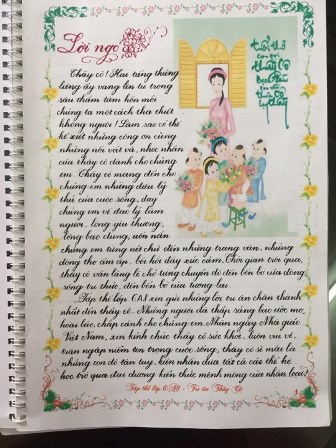 Lời ngỏ
tuổi thơ
Thầy Cô
Thầy cô! Hai tiếng thiêng
liêng ấy vang lên từ trong
sâu thẳm tâm hồn mỗi
chúng ta một cách tha thiết
khôn nguôi! Làm sao có thể
kể xiết những công ơn cùng
những nỗi vất vả, nhọc nhằn
của thầy cô dành cho chúng
em. Thầy cô mang đến cho
chúng em những điều kỳ
thú của cuộc sống, dạy
chúng em về đạo lý làm
người, lòng yêu thương,
lòng bao dung, uốn nắn
chúng em từng nét chữ đến những trang văn, những
dòng thơ ấm áp, bồi hồi đầy xúc cảm. Thời gian trôi qua,
thầy cô vẫn lặng lẽ chở từng chuyến đò đến bến bờ của dòng
sông tri thức, đến bến bờ của tương lai.
Tập thể lớp 6A8 xin gửi những lời tri ân chân thành
nhất đến thầy cô. Những người đã thắp sáng bao ước mơ,
hoài bão, chắp cánh cho chúng em. Nhân ngày Nhà giáo
Việt Nam, xin kính chúc thầy cô sức khỏe, luôn vui vẻ,
tràn ngập niềm tin trong cuộc sống, thầy cô sẽ mãi là
những con đò tận tụy, luôn nhẫn đưa tất cả các thế hệ
học trò qua đại dương kiến thức mênh mông của nhân loại!
Tập thể lớp 6A8 - Tri ân Thầy Cô